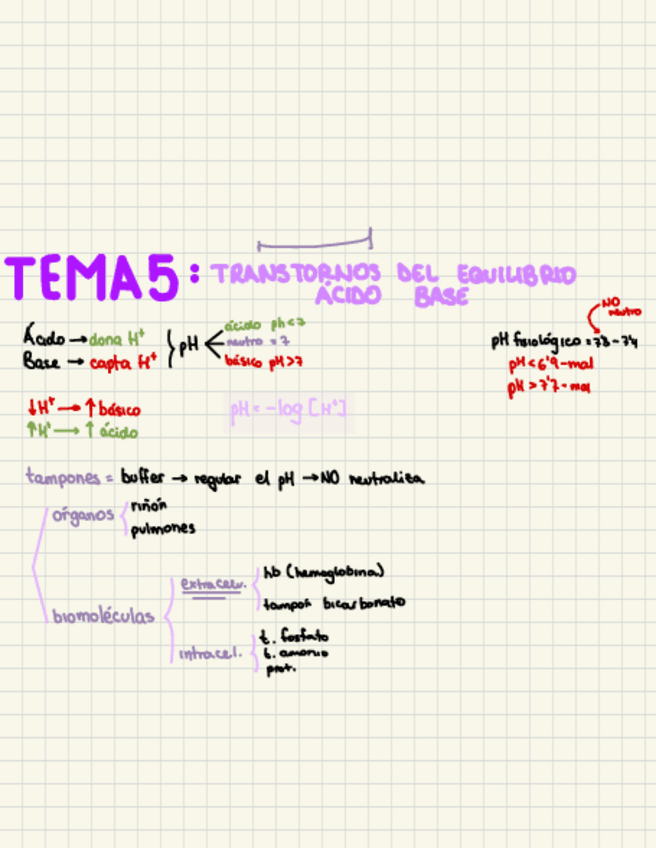 TEMA 5: TRANSTORNOS DEL EQUILIBRIO
ÁCIDO BASE
Ácido → dona H+
Base → capta H+
} pH
ácido ph<7
neutro = 7
básico pH>7
NO neutro
pH fisiológico = 7'3-7'4
pH < 6'9 - mal
pH > 7'7 - mal
↓H+ → ↑ básico
↑H+ → ↑ ácido
pH = -log [H+]
tampones = buffer → regular el pH → NO neutraliza
órganos
riñón
pulmones
biomoléculas
extracelu.
hb (hemoglobina)
tampón bicarbonato
intracel.
t. fosfato
t. amonio
prot.